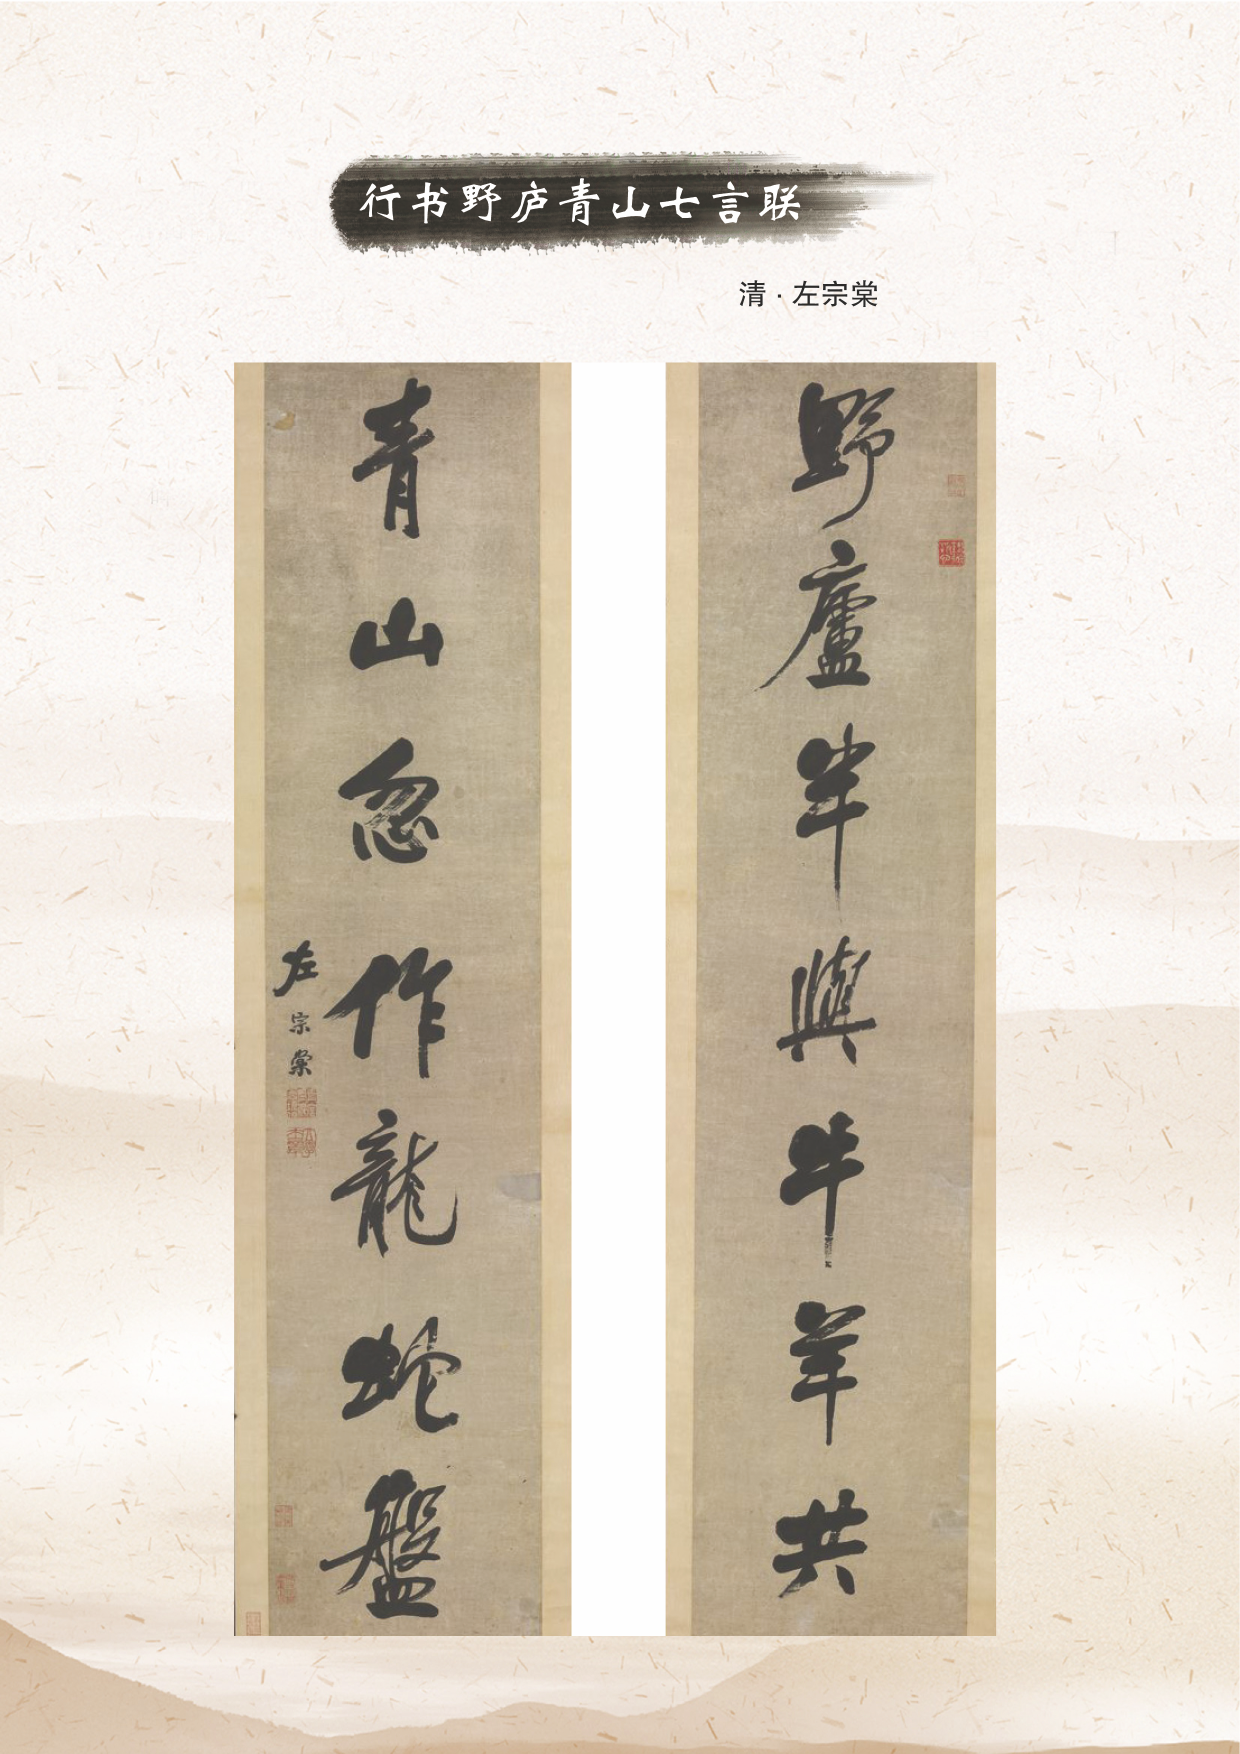 行书野庐青山七言联
清·左宗棠
野廬半與牛羊共
青山忽作龍蛇盤
左宗棠